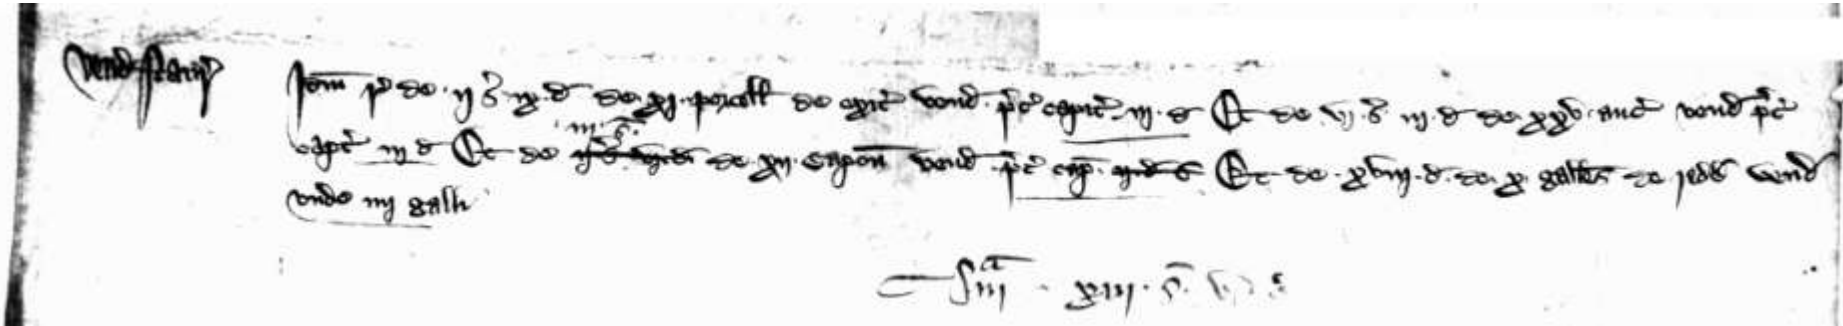 Vend staur
Idem r de ij s ix d de xj porcell de exit vend prec capit iij d Et de vj s iij d de xxv auc vend prec
capit iij d Et de iij s de xij capon vend prec cap Et de xviij d de x gallin de redd vend
unde iiij gall
Sma xiij s